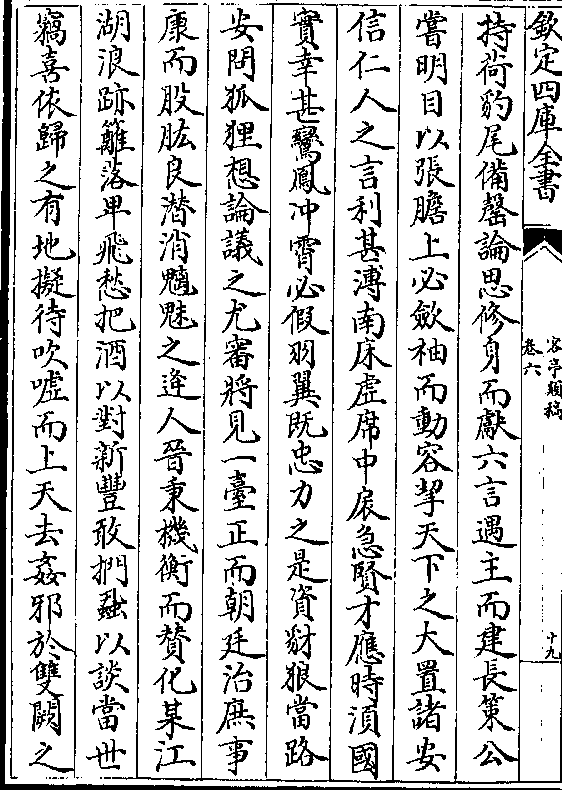 欽定四庫全書
客亭類稿
卷六
十九
持荷豹尾備罄論思修身而獻六言遇主而建長策公
嘗明目以張膽上必斂袖而動容挈天下之大置諸安
信仁人之言利甚溥南床虛席中扆急賢才應時湏國
實幸甚鸞鳳冲霄必假羽翼既忠力之是資豺狼當路
安問狐狸想論議之尤審將見一臺正而朝廷治庶事
康而股肱良潜消魑魅之逄人晉秉機衡而贊化某江
湖浪跡籬落卑飛愁把酒以對新豐敢捫蝨以談當世
竊喜依歸之有地擬待吹噓而上天去姦邪於雙闕之